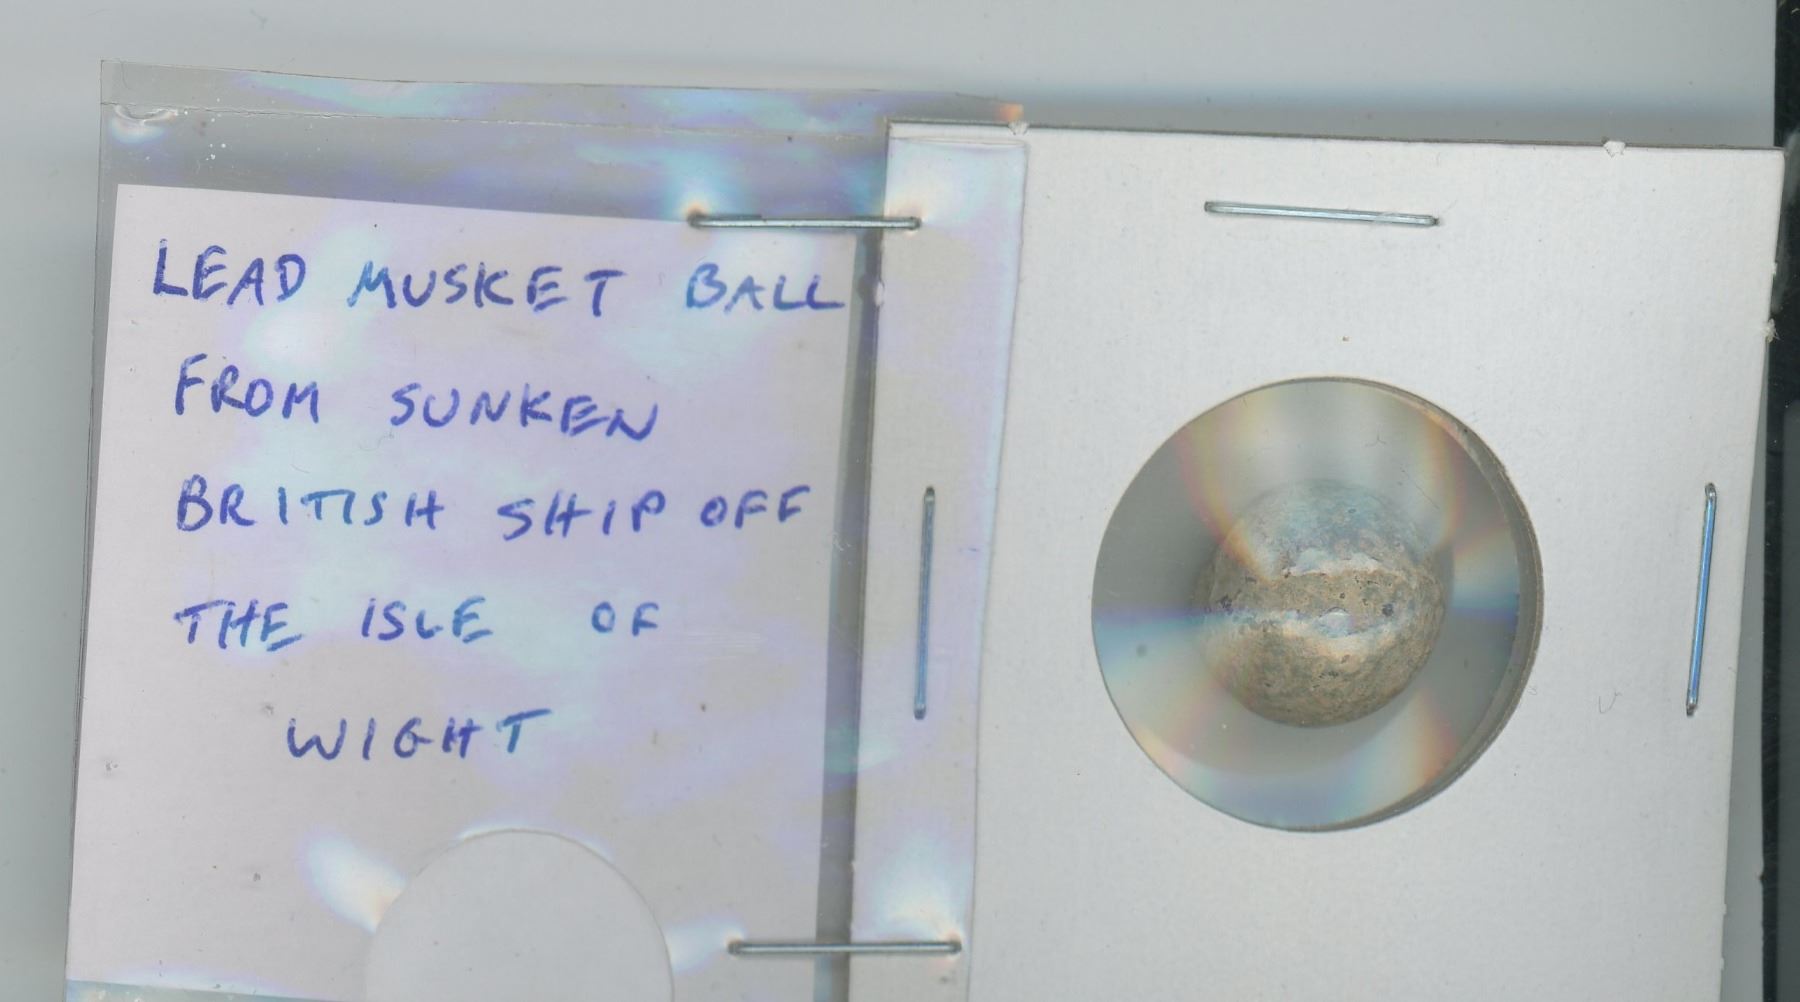 LEAD MUSKET BALL
FROM SUNKEN
BRITISH SHIP OFF
THE ISLE OF
WIGHT